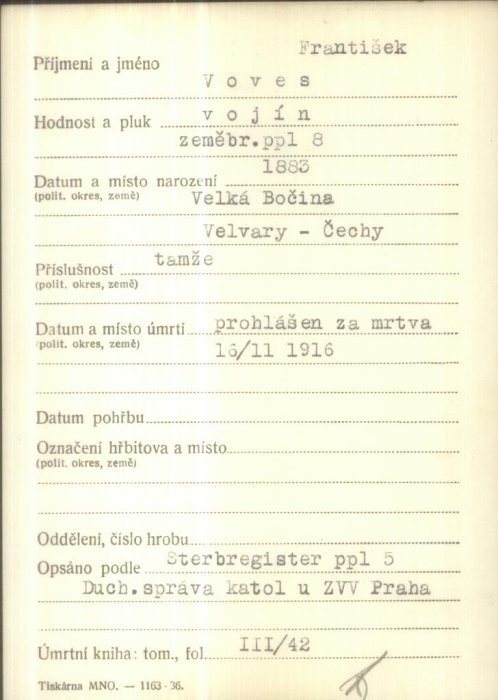 František
Příjmení a jméno
Voves
Hodnost a pluk vojín
zeměbr.ppl 8
1883
Datum a místo narození
(polit. okres, země) Velká Bočina
Velvary - Čechy
Příslušnost tamže
(polit. okres, země)
Datum a místo úmrtí prohlášen za mrtva
(polit. okres, země) 16/11 1916
Datum pohřbu
Označení hřbitova a místo
(polit. okres, země)
Oddělení, číslo hrobu
Opsáno podle Sterbregister ppl 5
Duch.správa katol u ZVV Praha
Úmrtní kniha: tom., fol. III/42
Tiskárna MNO. — 1163-36.